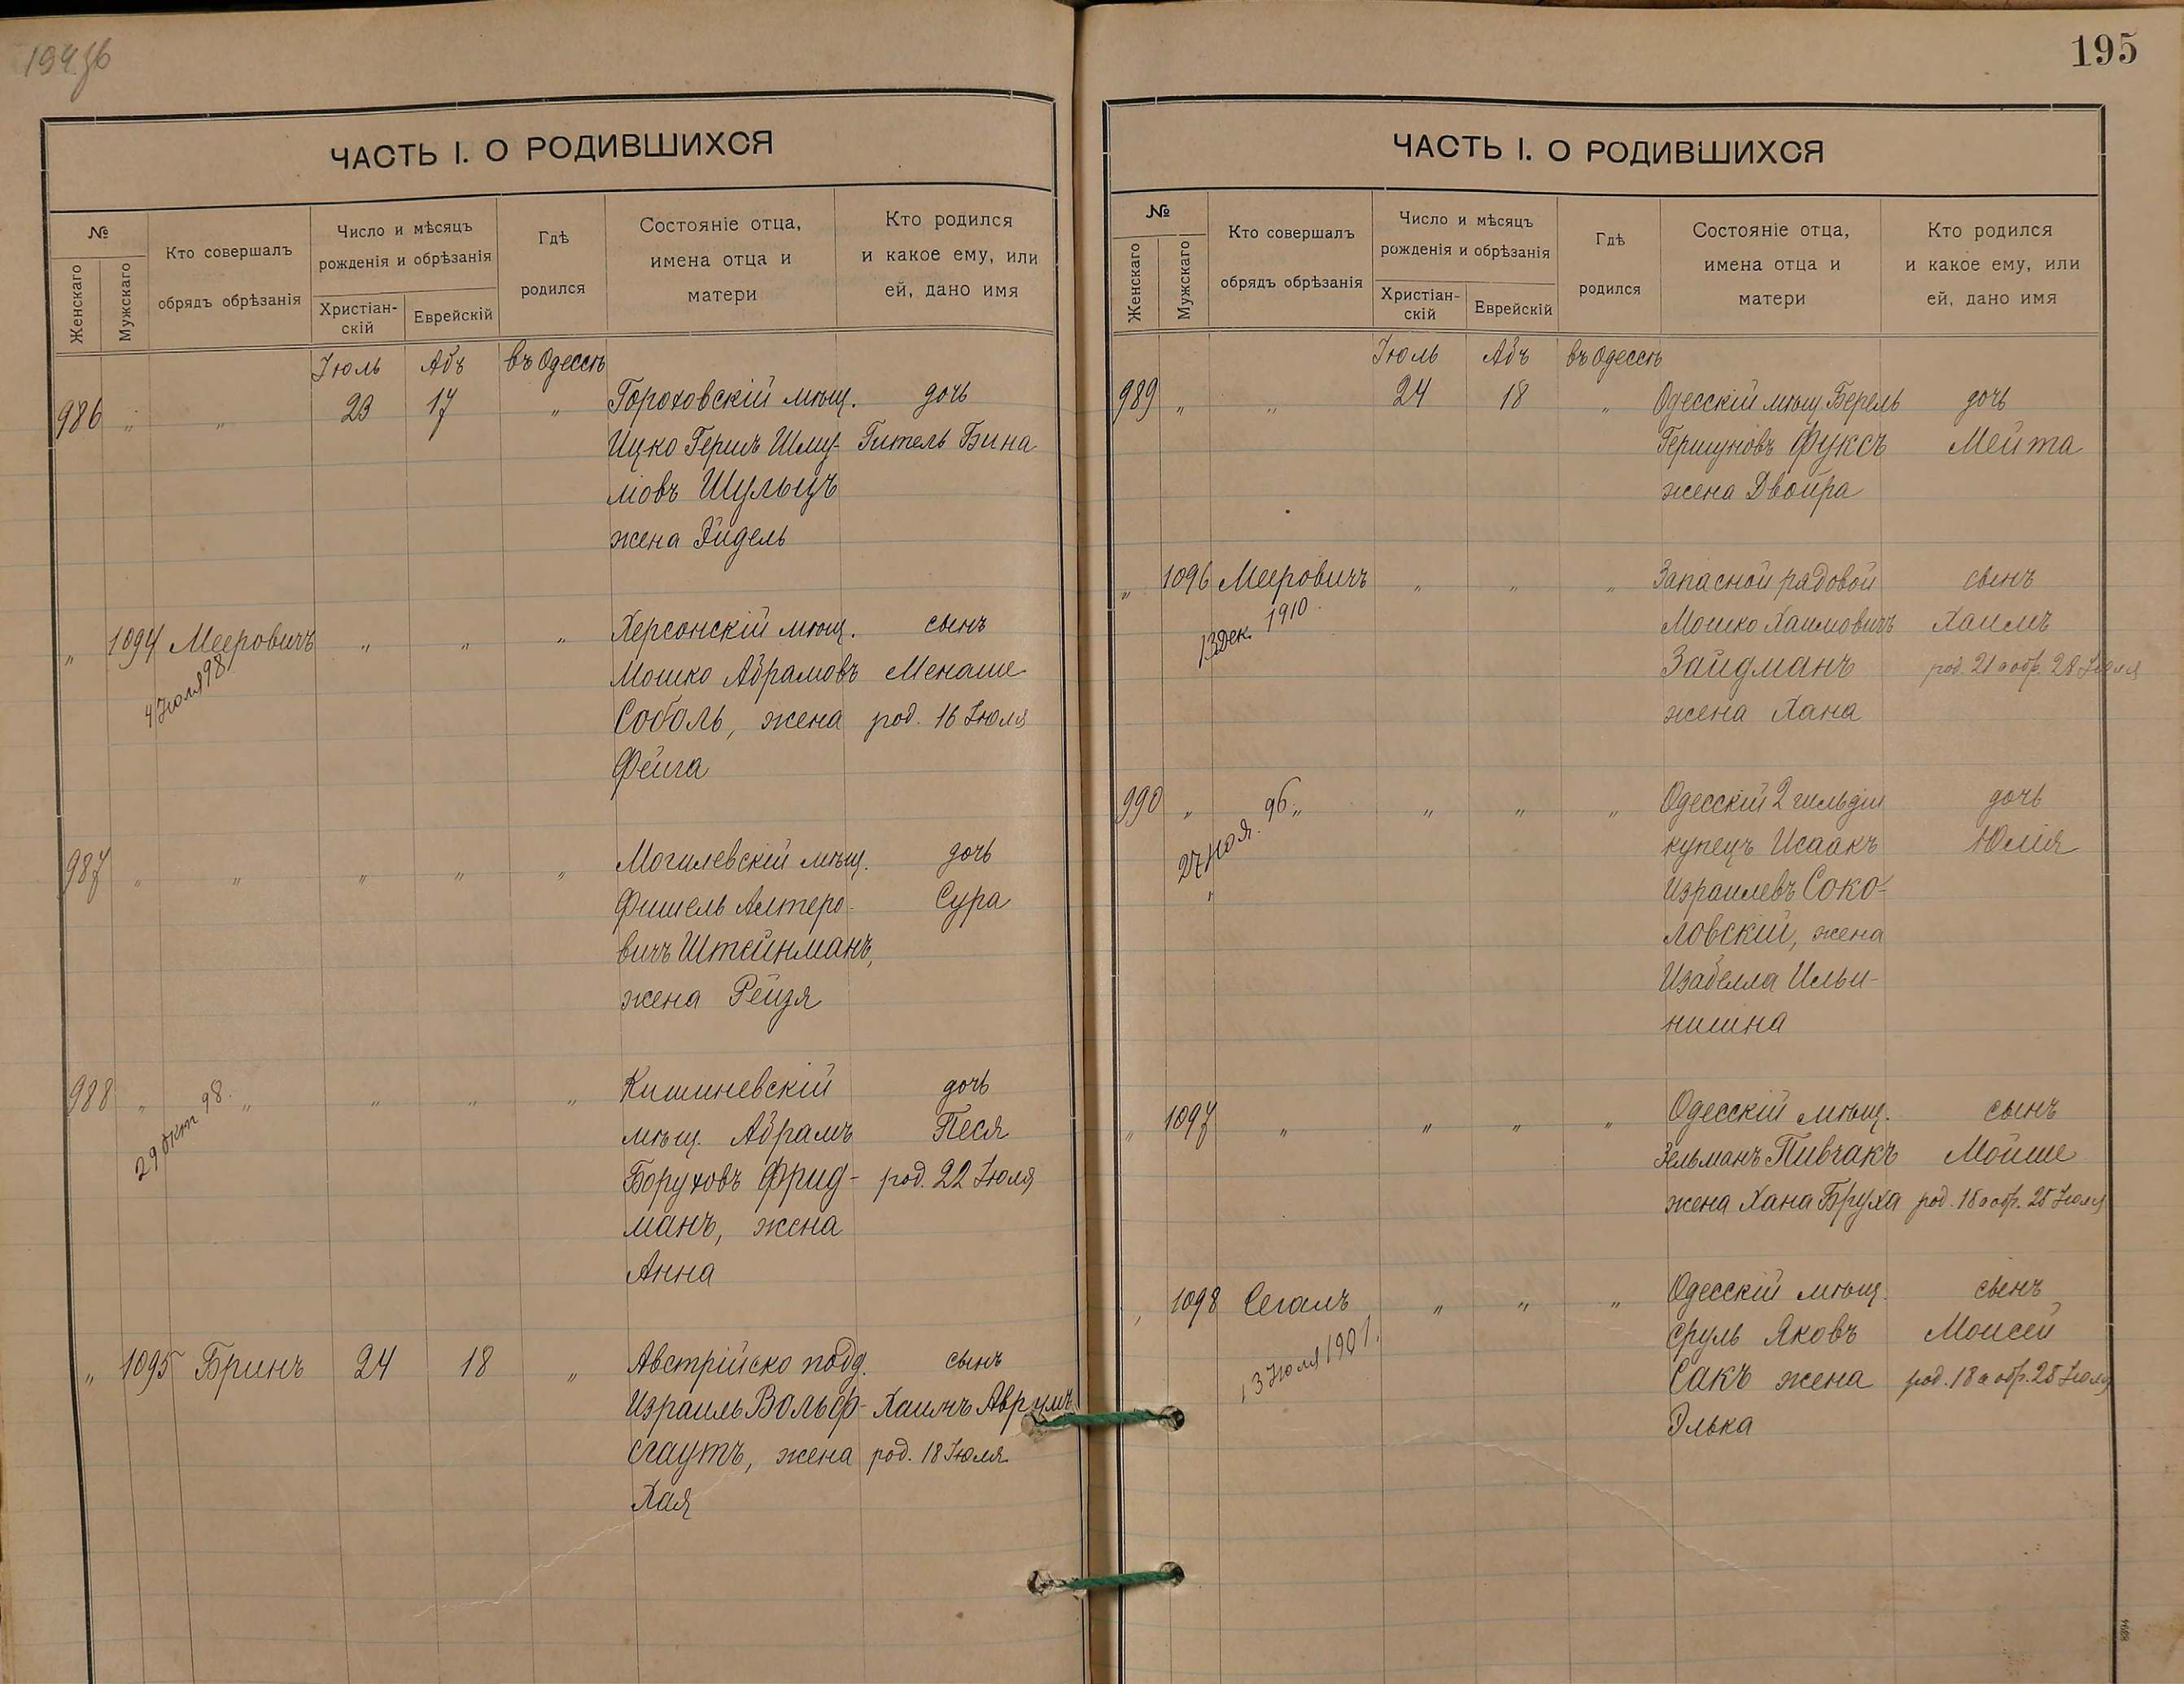 195
ЧАСТЬ I. О РОДИВШИХСЯ
№
Женскаго
Мужскаго
Кто совершалъ
обрядъ обрѣзанія
Число и мѣсяцъ
рожденія и обрѣзанія
Христіан-
скій
Еврейскій
Гдѣ
родился
Состояніе отца,
имена отца и
матери
Кто родился
и какое ему, или
ей, дано имя
Іюль Абъ въ Одессѣ
986 " " 23 17 " Гороховскій мѣщ. дочь
Ицко Гершъ Шму- Гитель Бина
ловъ Шульцъ
жена Эйдель
" 1094 Мееровичъ " " " Херсонскій мѣщ. сынъ
4 Іюля 98
Мошко Абрамовъ Менаше
Соболь, жена род. 16 Іюля
Фейга
987 " " " " " Могилевскій мѣщ. дочь
Фишель Алтеро- Сура
вичъ Штейнманъ,
жена Рейзя
988 " " " " " Кишиневскій дочь
29 окт 98.
мѣщ. Абрамъ Песя
Боруховъ Фрид- род. 22 Іюля
манъ, жена
Анна
" 1095 Бринъ 24 18 " Австрійско подд. сынъ
Израиль Вольф- Хаимъ Аврумъ
сгаутъ, жена род. 18 Іюля
Хая
ЧАСТЬ I. О РОДИВШИХСЯ
№
Женскаго
Мужскаго
Кто совершалъ
обрядъ обрѣзанія
Число и мѣсяцъ
рожденія и обрѣзанія
Христіан-
скій
Еврейскій
Гдѣ
родился
Состояніе отца,
имена отца и
матери
Кто родился
и какое ему, или
ей, дано имя
Іюль Абъ въ Одессѣ
989 " " 24 18 " Одесскій мѣщ. Берель дочь
Гершуновъ Фуксъ Мейта
жена Двойра
" 1096 Мееровичъ " " " Запасной рядовой сынъ
13 Дек. 1910.
Мошко Хаимовичъ Хаимъ
Зайдманъ род. 21 а обр. 28 Іюля
жена Хана
990 " " " " " Одесскій 2 гильдіи дочь
27 Ноя. 96
купецъ Исаакъ Юлія
Израилевъ Соко-
ловскій, жена
Изабелла Ильи-
нишна
" 1097 " " " " Одесскій мѣщ. сынъ
Зельманъ Пивчакъ Мойше
жена Хана Бруха род. 18 а обр. 25 Іюля
" 1098 Сегалъ " " " Одесскій мѣщ. сынъ
13 Іюля 1901.
Сруль Яковъ Моисей
Сакъ жена род. 18 а обр. 25 Іюля
Элька